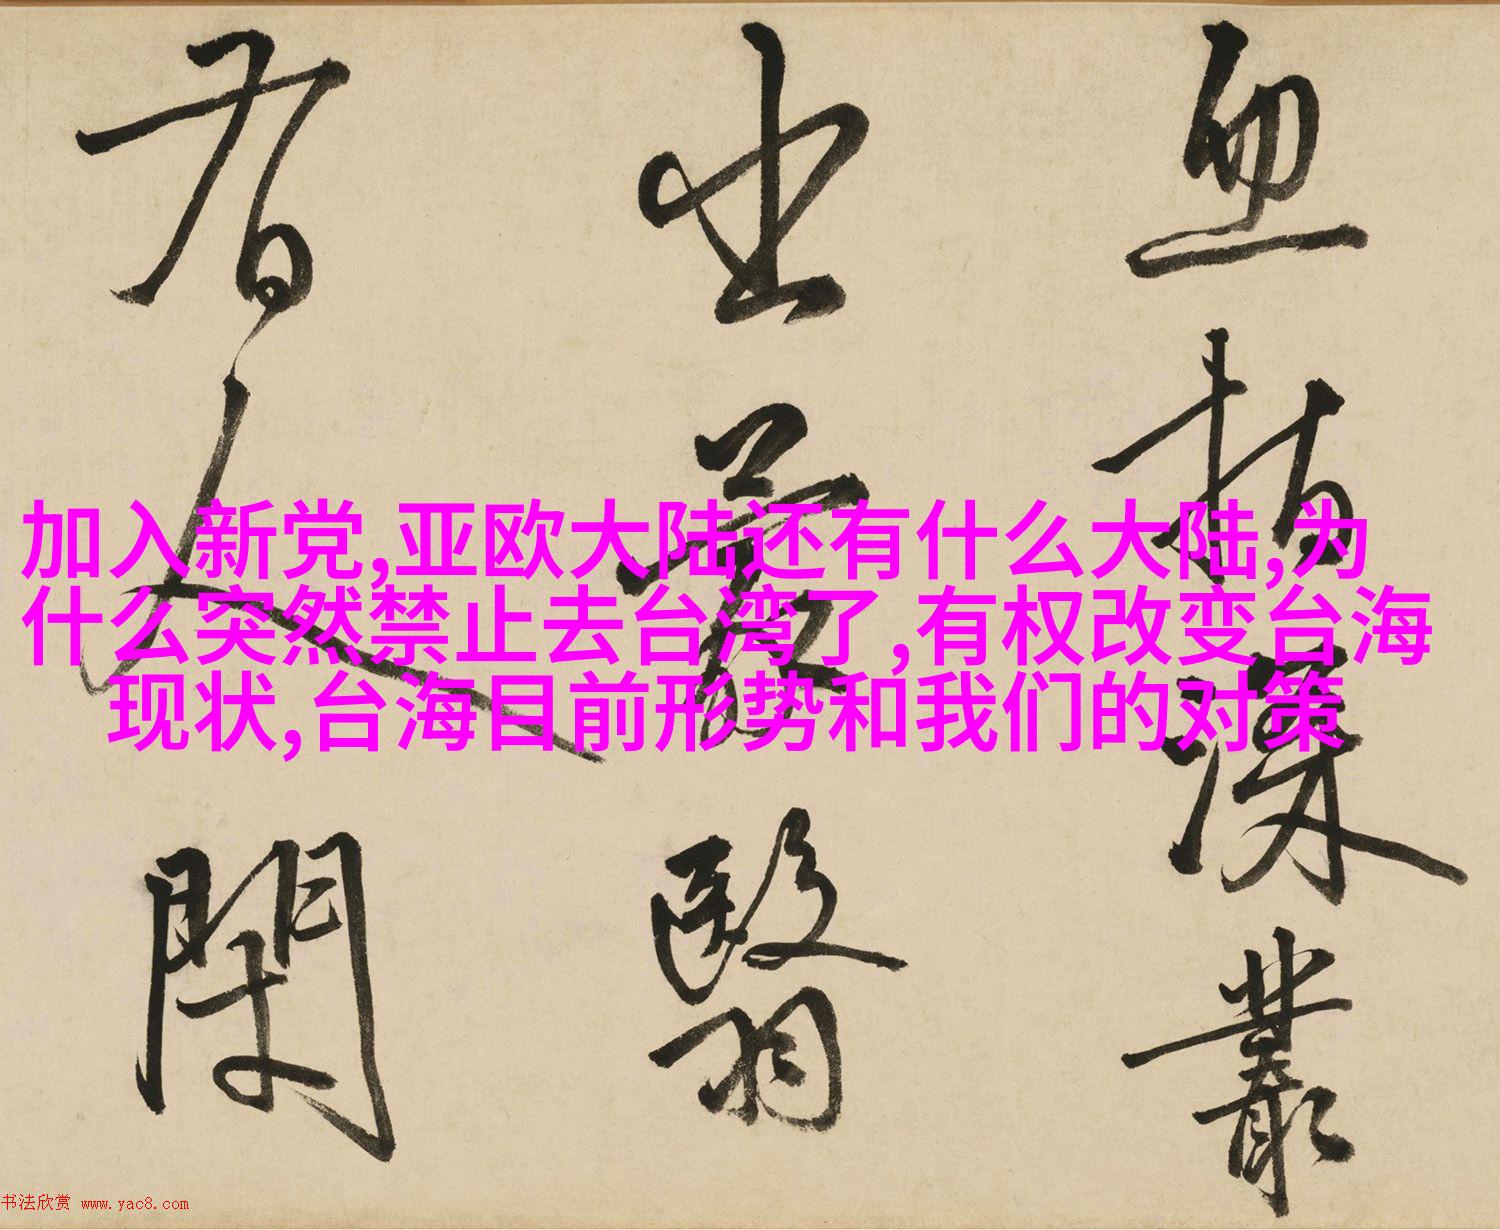 血指深叢
出蒙翳
者人閑
加入新党,亚欧大陆还有什么大陆,为
什么突然禁止去台湾了,有权改变台海
现状,台海目前形势和我们的对策
书法欣赏 www.yac8.com